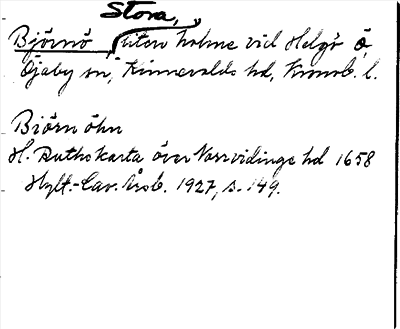 Stora,
Björnö, liten holme vid Helgö ö,
Öjaby sn, Kinnevalds hd, Kronob. l.
Biörn öhn
H. Ruthskarta över Norrvidinge hd 1658
Hylt.-Cav. Årsb. 1927, s. 149.